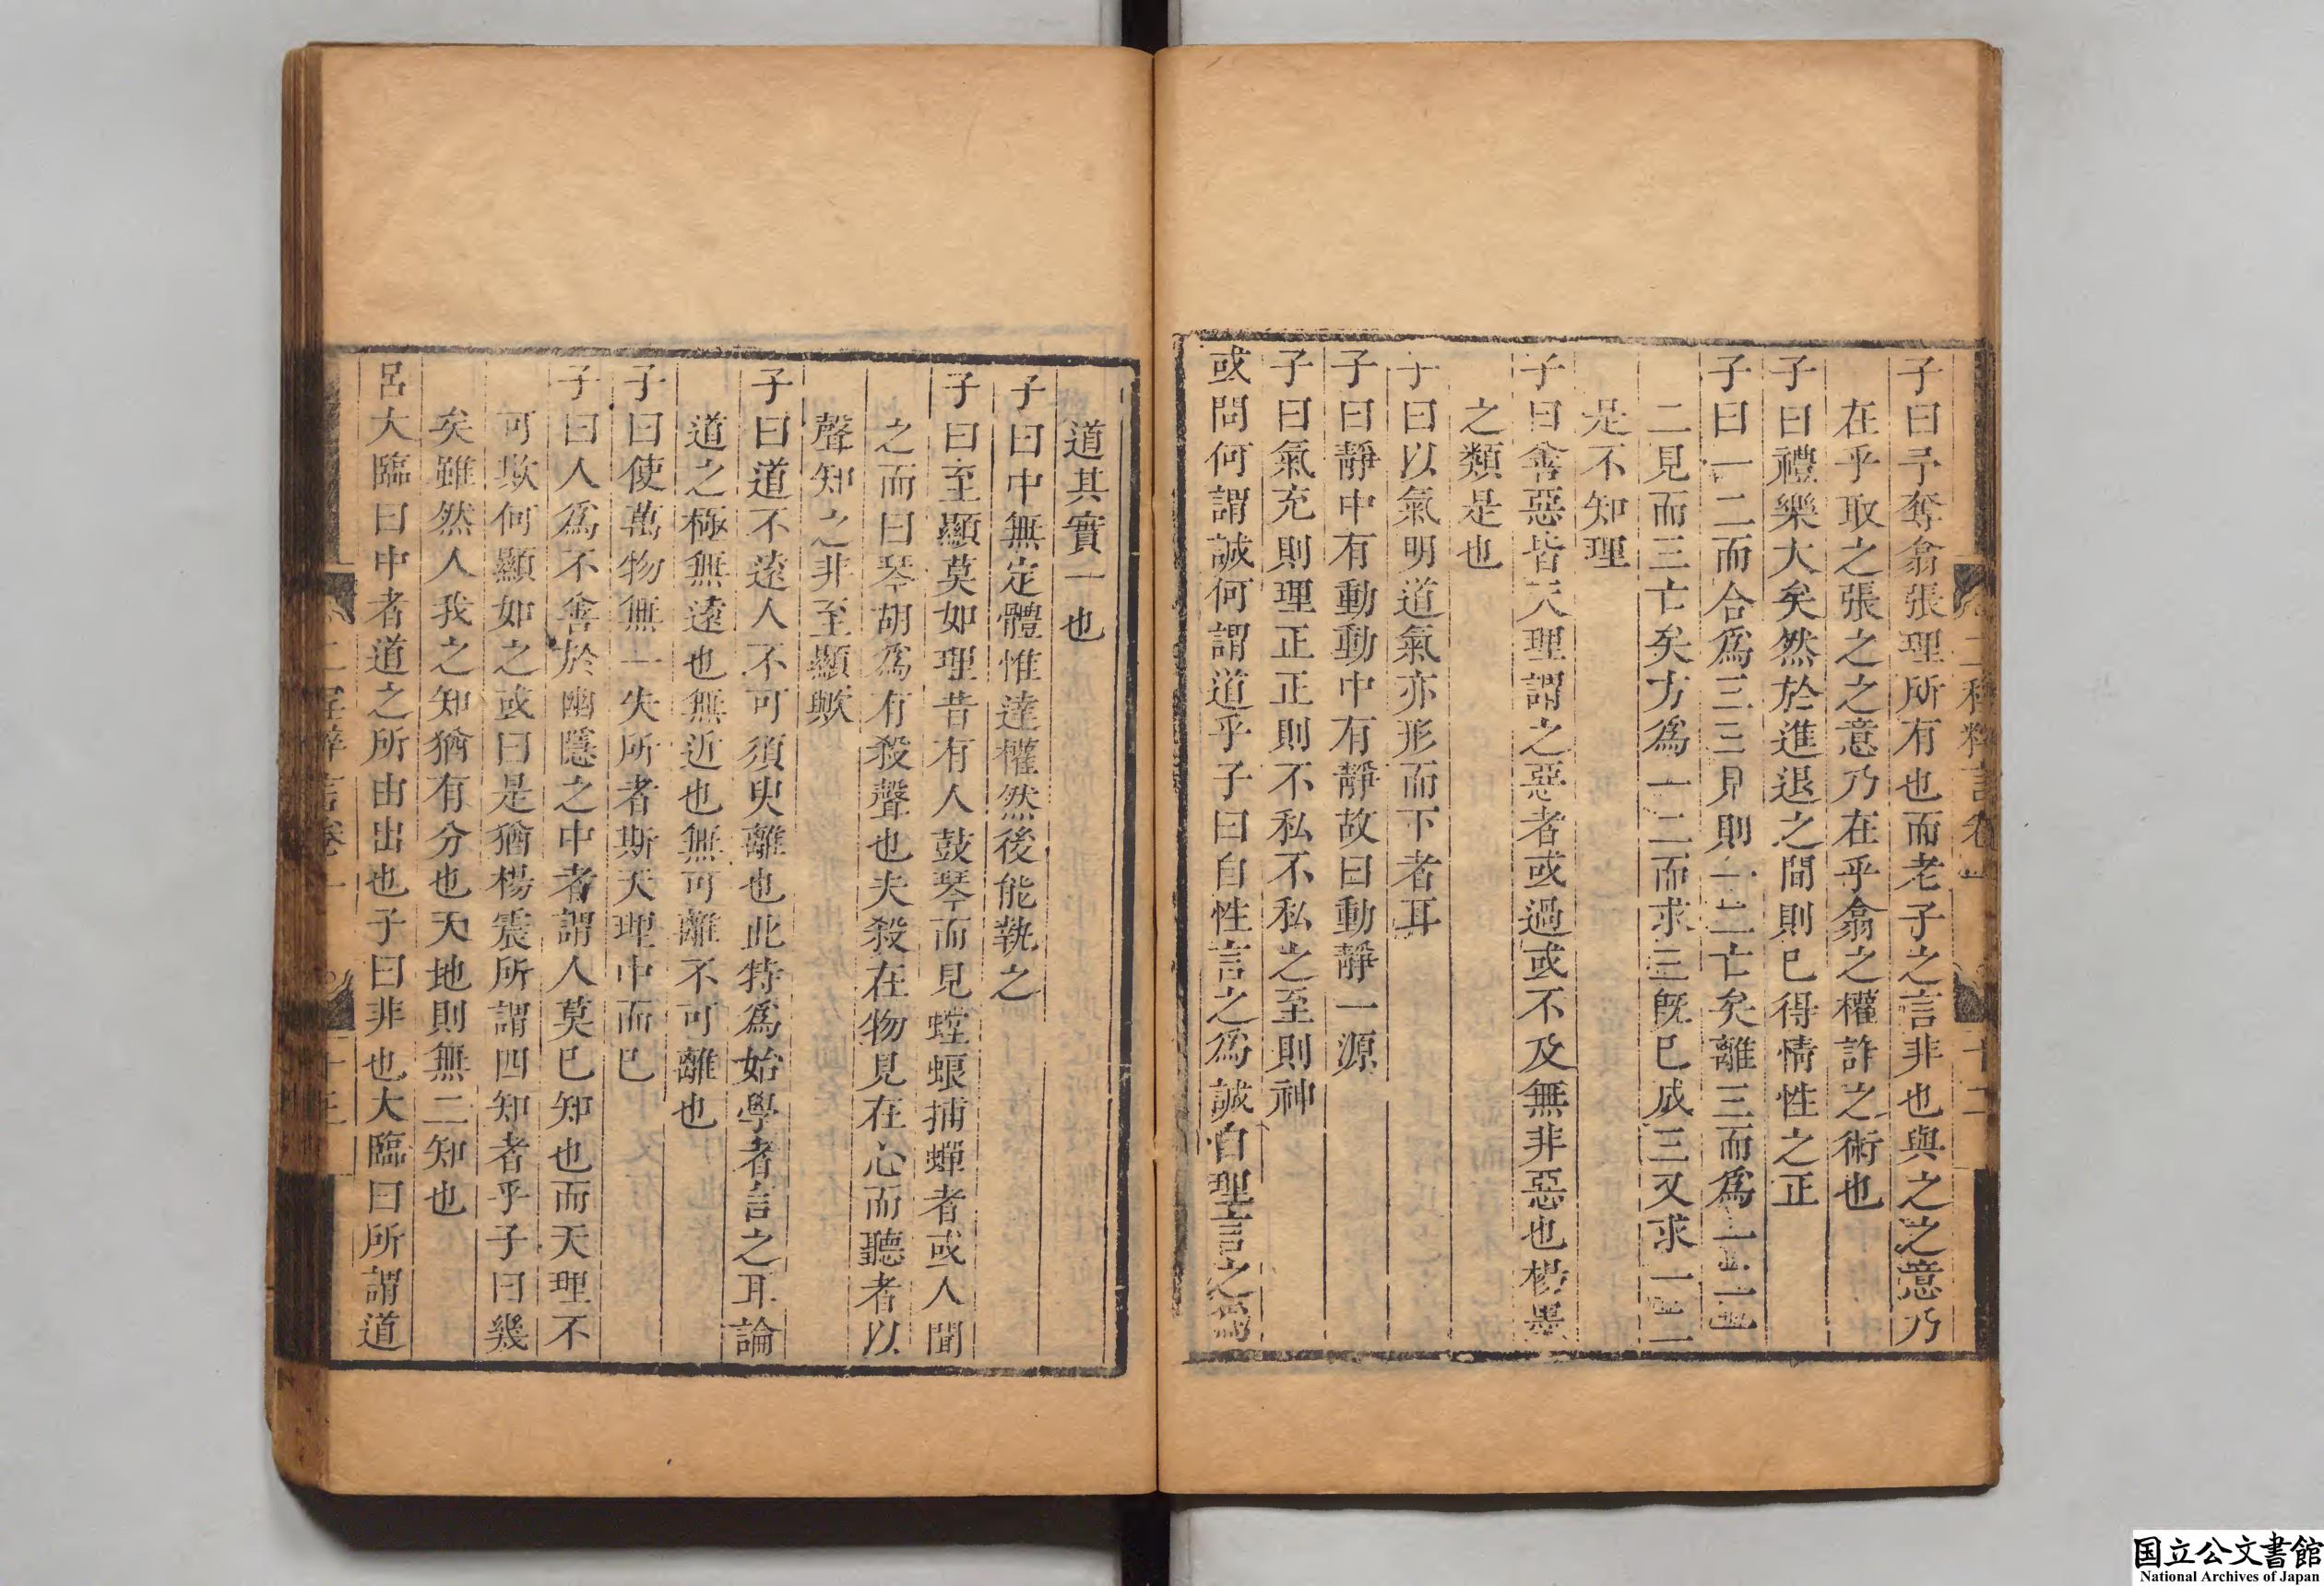 子曰予奪翕張理所有也而老子之言非也與之之意乃
在乎取之張之之意乃在乎翕之權詐之術也
子曰禮樂大矣然於進退之間則已得情性之正
子曰一二而合爲三三見則一二亡矣離三而爲一二一二
二見而三亡矣方爲一二而求三旣已成三又求一二
是不知理
子曰善惡皆天理謂之惡者或過或不及無非惡也楊墨
之類是也
子曰以氣明道氣亦形而下者耳
子曰靜中有動動中有靜故曰動靜一源
子曰氣充則理正正則不私不私之至則神
或問何謂誠何謂道乎子曰自性言之爲誠自理言之爲
道其實一也
子曰中無定體惟達權然後能執之
子曰至顯莫如理昔有人鼓琴而見螳蜋捕蟬者或人聞
之而曰琴胡爲有殺聲也夫殺在物見在心而聽者以
聲知之非至顯歟
子曰道不遠人不可須臾離也此特爲始學者言之耳論
道之極無遠也無近也無可離不可離也
子曰使萬物無一失所者斯天理中而已
子曰人爲不善於幽隱之中者謂人莫己知也而天理不
可欺何顯如之或曰是猶楊震所謂四知者乎子曰幾
矣雖然人我之知猶有分也天地則無二知也
呂大臨曰中者道之所由出也子曰非也大臨曰所謂道
国立公文書館
National Archives of Japan